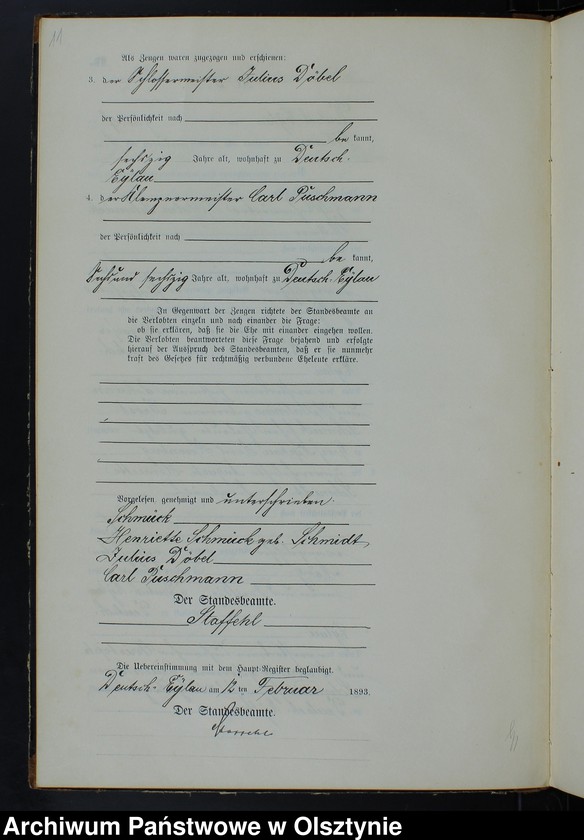 11
Als Zeugen waren zugezogen und erschienen:
3. der Schlossermeister Julius Döbel
der Persönlichkeit nach
be kannt,
sechszig Jahre alt, wohnhaft zu Deutsch-
Eylau
4. der Klempnermeister Carl Puschmann
der Persönlichkeit nach
be kannt,
Sechsund sechszig Jahre alt, wohnhaft zu Deutsch-Eylau
In Gegenwart der Zeugen richtete der Standesbeamte an
die Verlobten einzeln und nach einander die Frage:
ob sie erklären, daß sie die Ehe mit einander eingehen wollen.
Die Verlobten beantworteten diese Frage bejahend und erfolgte
hierauf der Ausspruch des Standesbeamten, daß er sie nunmehr
kraft des Gesetzes für rechtmäßig verbundene Eheleute erkläre.
Vorgelesen, genehmigt und unterschrieben.
Schmück
Henriette Schmück geb. Schmidt
Julius Döbel
Carl Puschmann
Der Standesbeamte.
Staffehl
Die Uebereinstimmung mit dem Haupt-Register beglaubigt.
Deutsch-Eylau am 12 ten Februar 1893.
Der Standesbeamte.
Archiwum Państwowe w Olsztynie